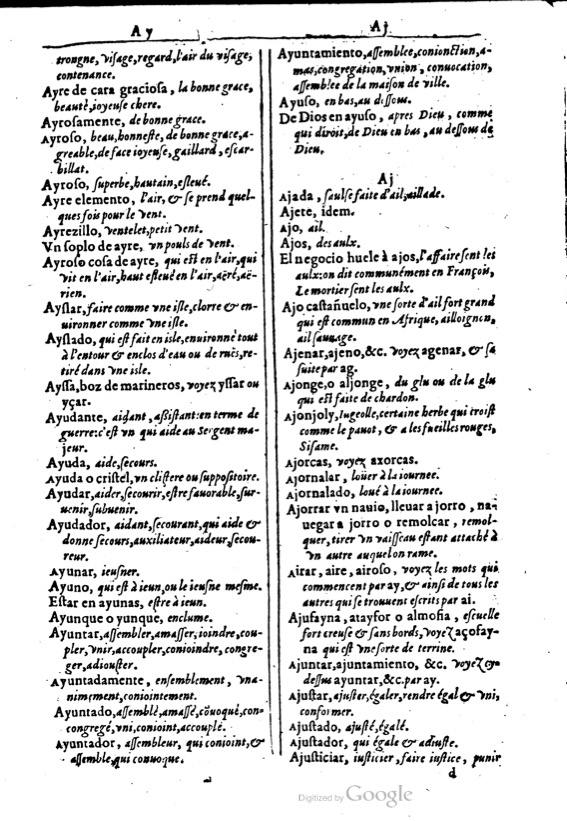 Ay
trongne, visage, regard, l'air du visage,
contenance.
Ayre de cara graciosa, la bonne grace,
beauté, ioyeuse chere.
Ayrosamente, de bonne grace.
Ayroso, beau, honneste, de bonne grace, a-
greable, de face ioyeuse, gaillard, escar-
billat.
Ayroso, superbe, hautain, esleué.
Ayre elemento, l'air, & se prend quel-
ques fois pour le vent.
Ayrezillo, ventelet, petit vent.
Vn soplo de ayre, vn pouls de vent.
Ayroso cosa de ayre, qui est en l'air, qui
vit en l'air, haut esleué en l'air, aëré, aë-
rien.
Ayslar, faire comme vne isle, clorre & en-
uironner comme vne isle.
Ayslado, qui est fait en isle, enuironné tout
à l'entour & enclos d'eau ou de ruës, re-
tiré dans vne isle.
Ayssa, boz de marineros, voyez yssar ou
yçar.
Ayudante, aidant, assistant: en terme de
guerre: c'est vn qui aide au Sergent ma-
jeur.
Ayuda, aide, secours.
Ayuda o cristel, vn clistere ou suppositoire.
Ayudar, aider, secourir, estre fauorable, sur-
uenir, subuenir.
Ayudador, aidant, secourant, qui aide &
donne secours, auxiliateur, aideur, secou-
reur.
Ayunar, ieusner.
Ayuno, qui est à ieun, ou le ieusne mesme.
Estar en ayunas, estre à ieun.
Ayunque o yunque, enclume.
Ayuntar, assembler, amasser, ioindre, cou-
pler, vnir, accoupler, conioindre, congre-
ger, adiouster.
Ayuntadamente, ensemblement, vna-
nimement, coniointement.
Ayuntado, assemblé, amassé, cõuoqué, con-
congregé, vni, conioint, accouplé.
Ayuntador, assembleur, qui conioint, &
assemble, qui conuoque.
Aj
Ayuntamiento, assemblee, conionction, a-
mas, congregation, vnion, conuocation,
assemblee de la maison de ville.
Ayuso, en bas, au dessous.
De Dios en ayuso, apres Dieu, comme
qui diroit, de Dieu en bas, au dessous de
Dieu.
Aj
Ajada, saulse faite d'ail, aillade.
Ajete, idem.
Ajo, ail.
Ajos, des aulx.
El negocio huele à ajos, l'affaire sent les
aulx: on dit communément en François,
Le mortier sent les aulx.
Ajo castañuelo, vne sorte d'ail fort grand
qui est commun en Afrique, ailloignon,
ail sauuage.
Ajenar, ajeno, &c. voyez agenar, & sa
suite par ag.
Ajonge, o aljonge, du glu ou de la glu
qui est faite de chardon.
Ajonjoly, Iugeolle, certaine herbe qui croist
comme le pauot, & a les fueilles rouges,
Sisame.
Ajorcas, voyez axorcas.
Ajornalar, loüer à la iournee.
Ajornalado, loué à la iournee.
Ajorrar vn nauio, lleuar a jorro, na-
uegar a jorro o remolcar, remol-
quer, tirer vn vaisseau estant attaché à
vn autre auquel on rame.
Airar, aire, airoso, voyez les mots qui
commencent par ay, & ainsi de tous les
autres qui se trouuent escrits par ai.
Ajufayna, atayfor o almofia, escuelle
fort creuse & sans bords, voyez açofay-
na qui est vne sorte de terrine.
Ajuntar, ajuntamiento, &c. voyez cy
dessus ayuntar, &c. par ay.
Ajustar, ajuster, égaler, rendre égal & vni,
conformer.
Ajustado, ajusté, égalé.
Ajustador, qui égale & adiuste.
Ajusticiar, iusticier, faire iustice, punir
d
Digitized by Google